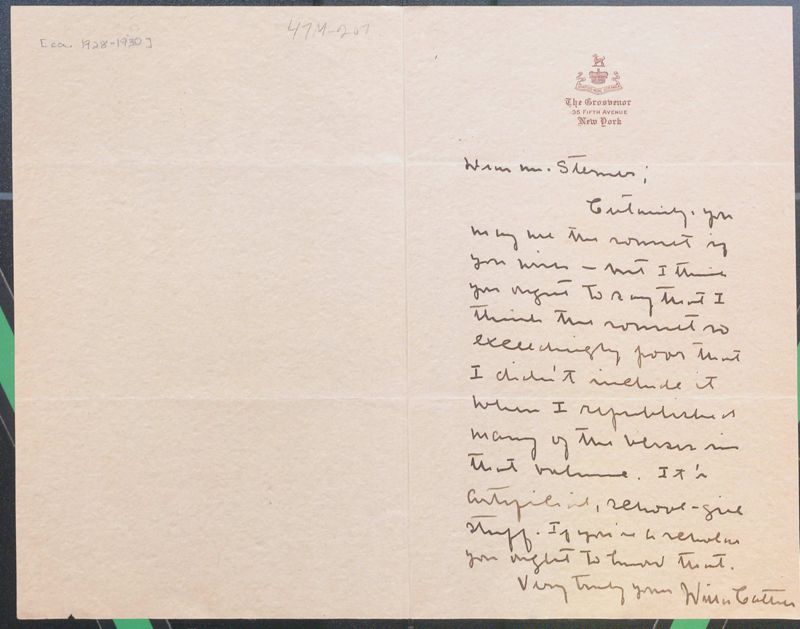 [ca. 1928-1930]
47M-207
The Grosvenor
35 FIFTH AVENUE
New York
Dear Mr. Sterner;
Certainly, you
may use the sonnet if
you wish – but I think
you ought to say that I
think the sonnet so
exceedingly poor that
I didn't include it
when I republished
many of the verses in
that volume. It's
artificial, school-girl
stuff. If you're a scholar
you ought to know that.
Very truly yours Willa Cather